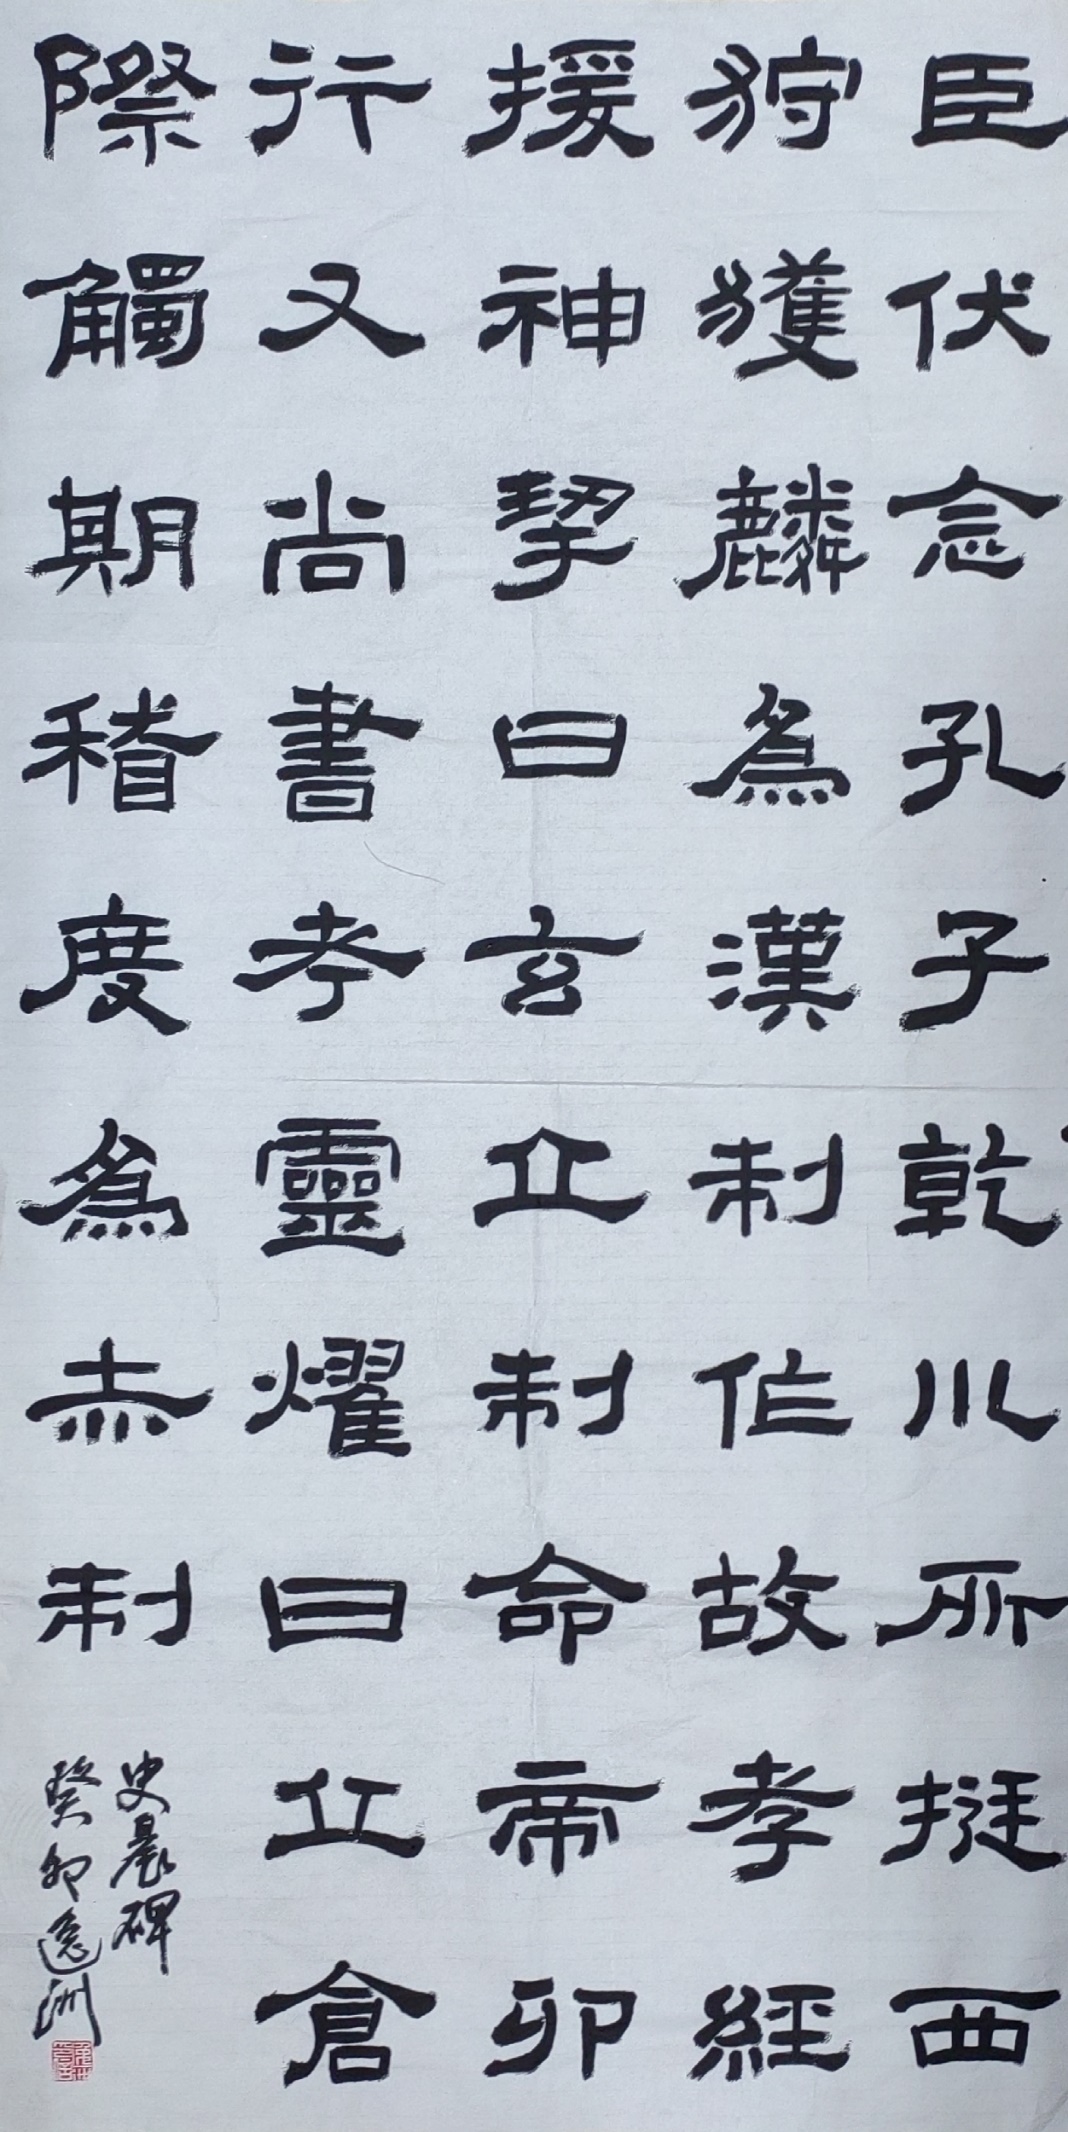 臣伏念孔子乾川所挺西
狩獲麟為漢制作故孝經
援神挈曰玄丘制命帝卯
行又尚書考靈燿曰丘倉
際觸期稽度為赤制
史晨碑
癸卯逸洲